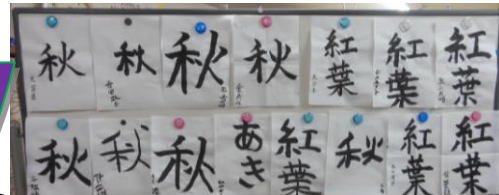 秋 秋 秋 秋 紅葉 紅葉 紅葉
秋 秋 秋 あき 紅葉 秋 紅葉 紅葉